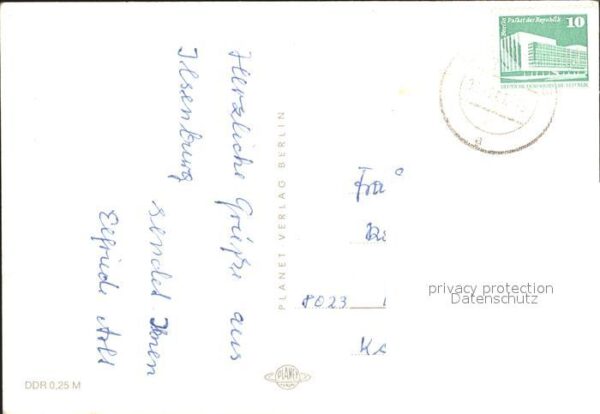 Herzliche Grüße aus
Ilsenburg
sendet Ihnen
Elfriede
PLANET VERLAG BERLIN
Berlin Palast der Republik
10
DEUTSCHE DEMOKRATISCHE REPUBLIK
Fra
8023
privacy protection
Datenschutz
PLANET
DDR 0,25 M